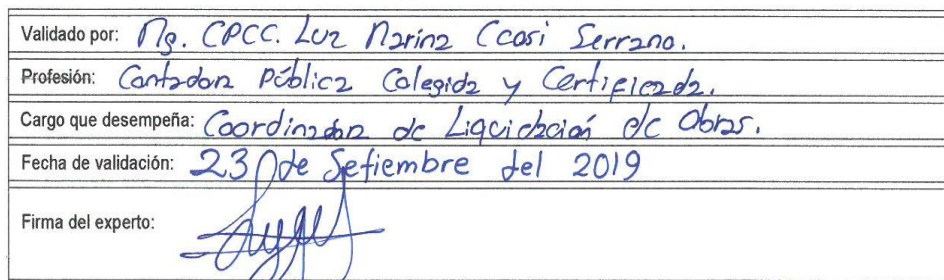 Validado por: Mg. CPCC. Luz Marina Ccasi Serrano.
Profesión: Contadora Pública Colegida y Certificada.
Cargo que desempeña: Coordinadora de Liquidación de Obras.
Fecha de validación: 23 de Setiembre del 2019
Firma del experto: